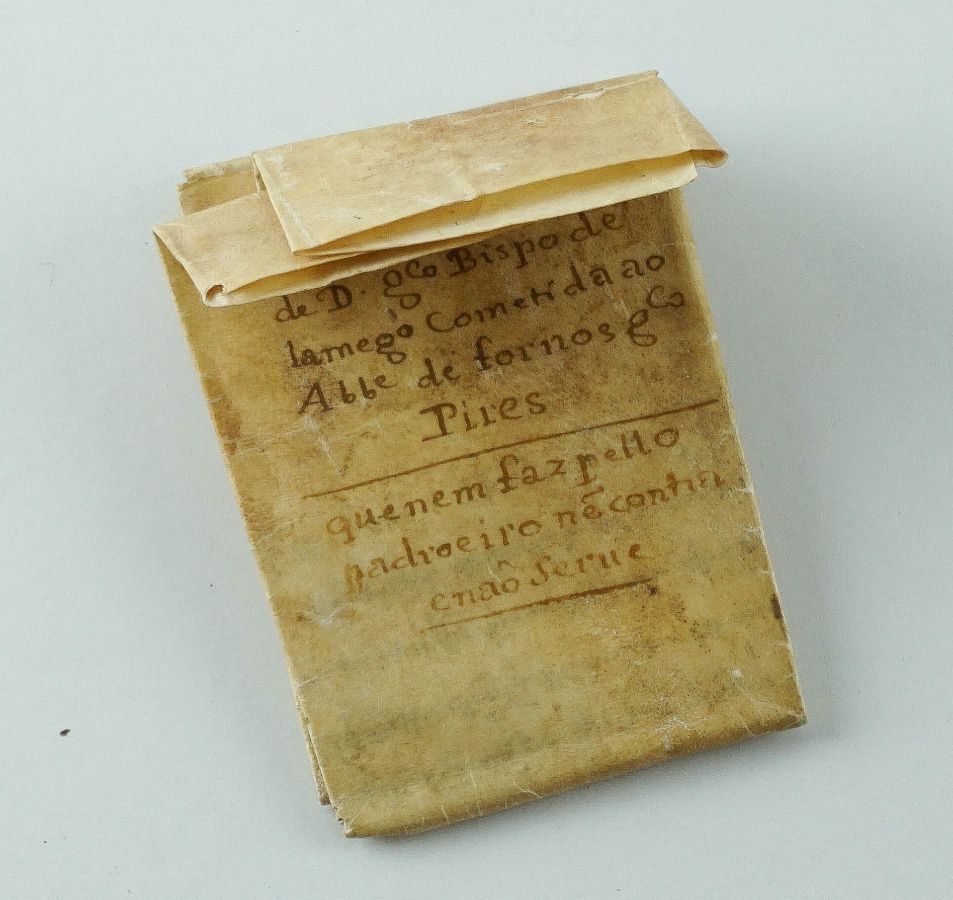 de D. gco Bispo de
lamego Cometida ao
Abbe de fornos gco
Pires
quenem faz pello
padroeiro nẽ contra
enaõ serue